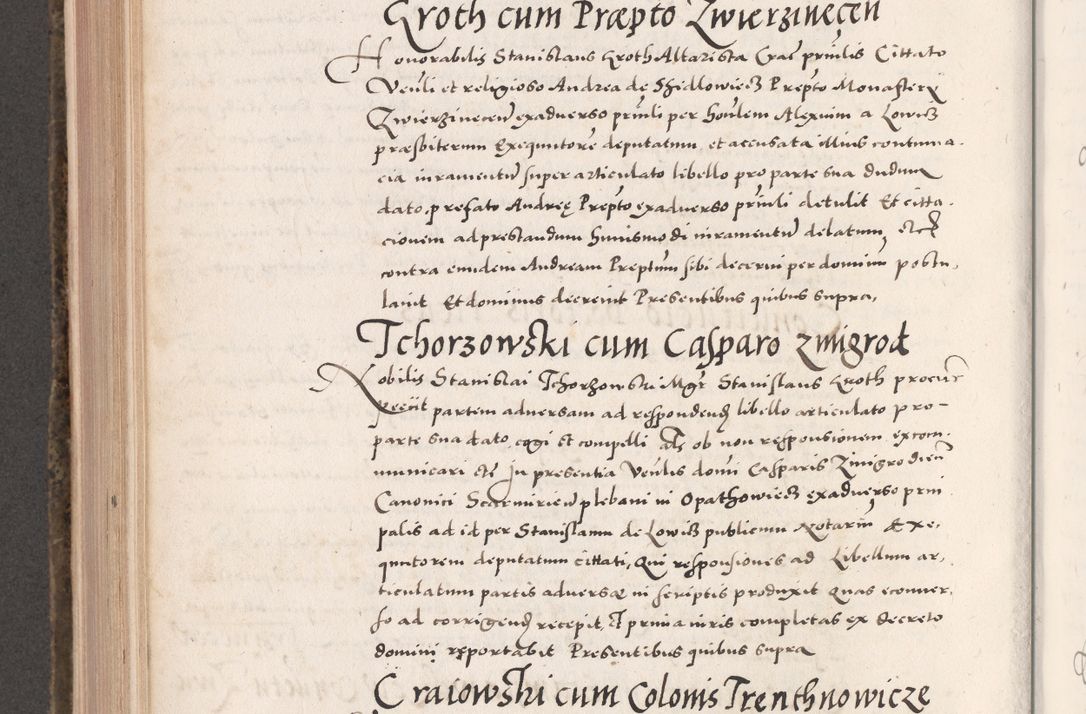 Groth cum Præpto Zwierzinecen
Honorabilis Stanislaus Groth Altarista Crac prinlis Cittato
Venli et religioso Andrea de Szidlowiecz Prepto Monasterij
Zwierzinecen exaduerso prinli per honlem Alexium a Lowicz
præsbiterum Exequutore deputatum et accusata illius contuma-
cia iuramentu super articulato libello pro parte sua dudum
dato, prefato Andreę Prepto exaduerso prinli detulit Et citta-
cionem ad prestandum huiusmodi iuramentu delatum, etc
contra eundem Andream Preptum sibi decerni per dominu postu-
lauit Et dominus decreuit Presentibus quibus supra,
Tchorzowski cum Casparo zmigrod
Nobilis Stanislai Tchorzowski Mgr Stanislaus Groth procur
petiit partem aduersam ad respondend libello articulato pro-
parte sua dato, cogi et compelli als ob non responsionem excom-
municari etc In presentia Venlis domi Casparis Zmigrodien
Canonici plebani in Opathowiecz exaduerso prin
palis ad id per Stanislaum de Lowicz publicum Notariu Exe-
quutorem deputatum cittati, Qui responsiones ad Libellum ar-
ticulatum partis aduersæ in scriptis produxit Quas econuer-
so ad corrigend recepit, Et prima iuris completas ex decreto
domini reportabit Presentibus quibus supra
Craiowski cum Colonis Trenchnowicze